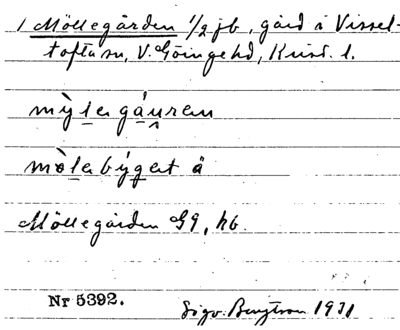 1 Möllegården 1/2 jb, gård i Vissel-
tofta sn, V. Göinge hd, Krist. l.
mỳlegáuren
mòlebýget å
Möllegården GG, hb.
Nr 5392. Sigv. Bengtson 1931